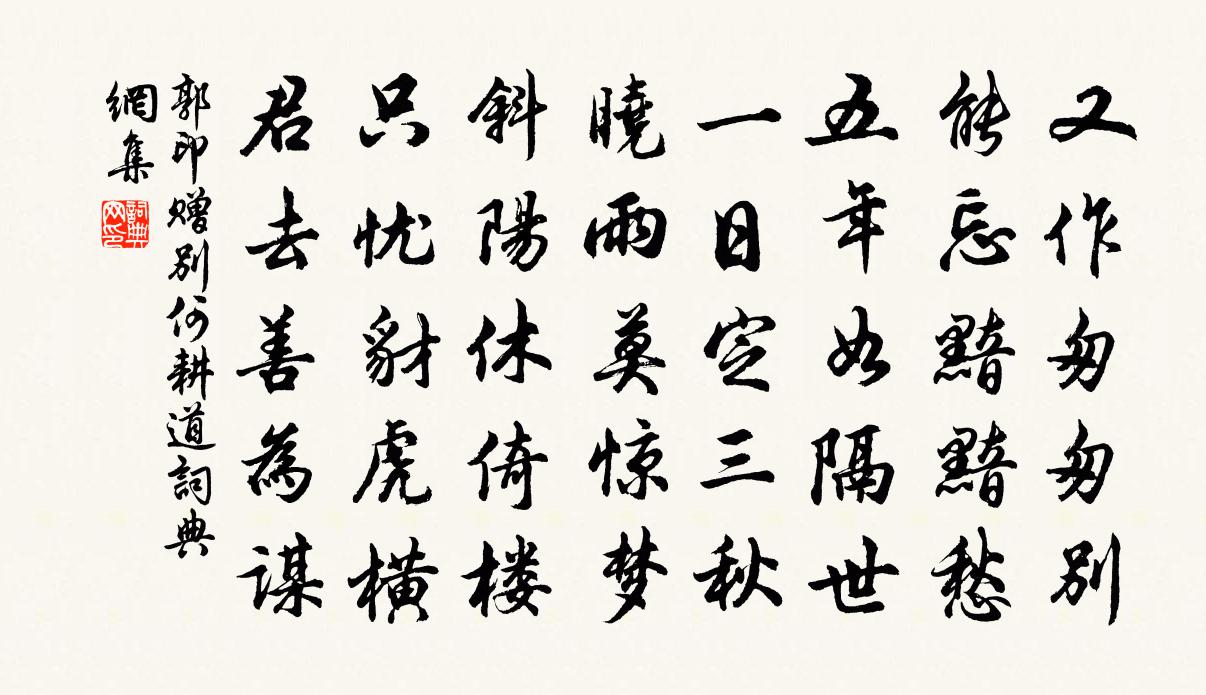 又作匆匆别
能忘黯黯愁
五年如隔世
一日定三秋
曉雨莫惊梦
斜陽休倚楼
只忧豺虎横
君去善為谋
郭印赠别何耕道詞典
網集
詞典网印